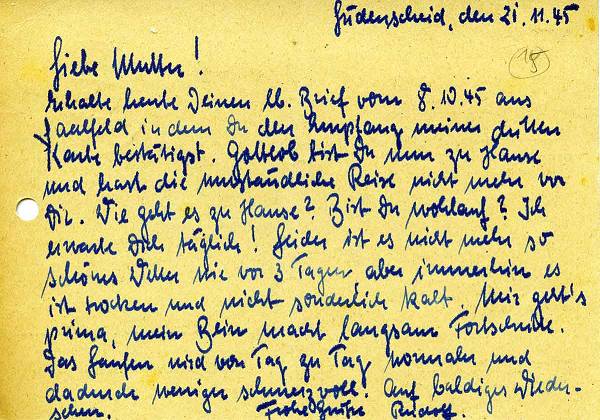 Lüdenscheid, den 21.11.45
15
Liebe Mutter!
Erhalte heute Deinen lb. Brief vom 8.10.45 aus
Saalfeld in dem Du den Empfang meiner dritten
Karte bestätigst. Gottlob bist Du nun zu Hause
und hast die umständliche Reise nicht mehr vor
Dir. Wie geht es zu Hause? Bist Du wohlauf? Ich
erwarte Dich täglich! Leider ist es nicht mehr so
schönes Wetter wie vor 3 Tagen aber immerhin es
ist trocken und nicht sonderlich kalt. Mir geht's
prima, mein Bein macht langsam Fortschritte.
Das Laufen wird von Tag zu Tag normaler und
dadurch weniger schmerzvoll. Auf baldiges Wieder-
sehen. Frohe Grüße Rudolf.